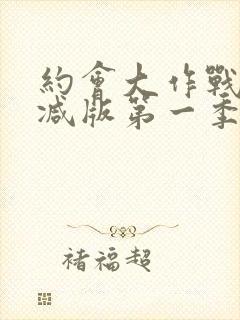 約會大作戰
减版第一季
褚福超